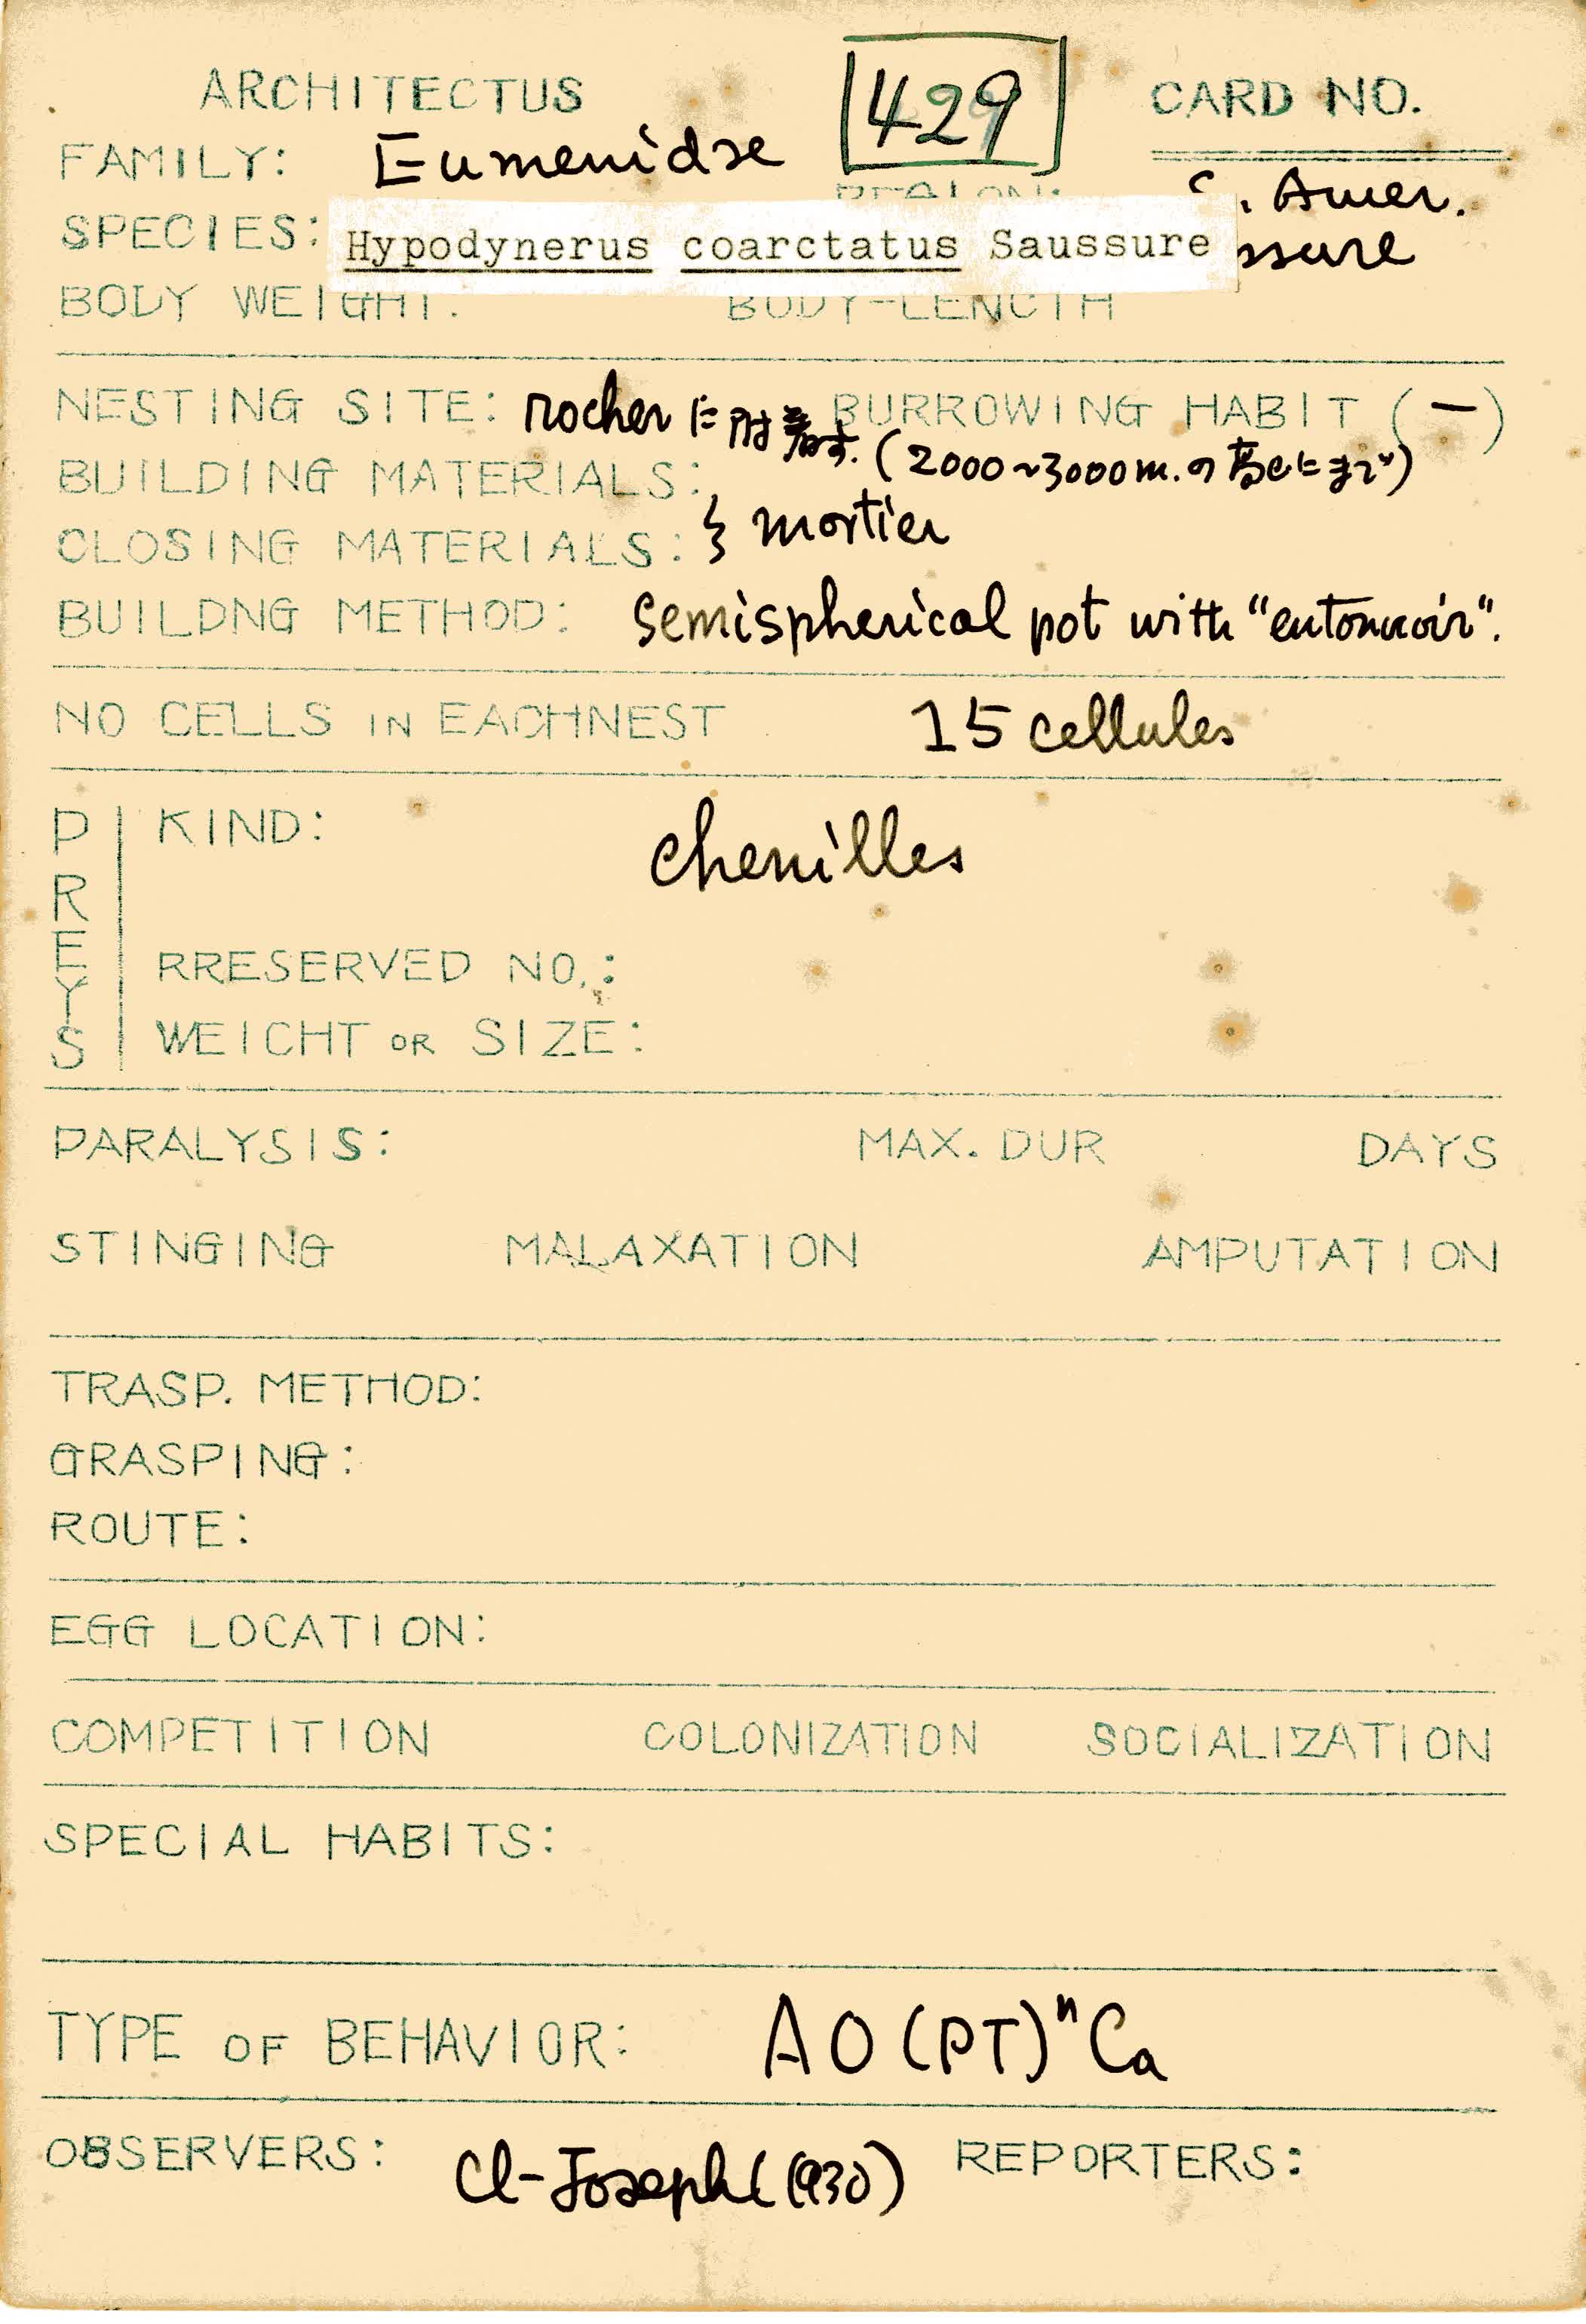 ARCHITECTUS 429 CARD NO.
FAMILY: Eumenidae REGION: S. Amer.
SPECIES: Hypodynerus coarctatus Saussure ssure
BODY WEIGHT: BODY-LENGTH
NESTING SITE: rocher に附着す. BURROWING HABIT (—)
(2000~3000m.の高さにまで)
BUILDING MATERIALS:
CLOSING MATERIALS: } mortier
BUILDNG METHOD: Semispherical pot with "entonnoir".
NO CELLS IN EACHNEST 15 cellules
PREYS
KIND: chenilles
RRESERVED NO.:
WEICHT OR SIZE:
PARALYSIS: MAX. DUR DAYS
STINGING MALAXATION AMPUTATION
TRASP. METHOD:
GRASPING:
ROUTE:
EGG LOCATION:
COMPETITION COLONIZATION SOCIALIZATION
SPECIAL HABITS:
TYPE OF BEHAVIOR: AO(PT)ⁿCa
OBSERVERS: Cl-Joseph (1930) REPORTERS: